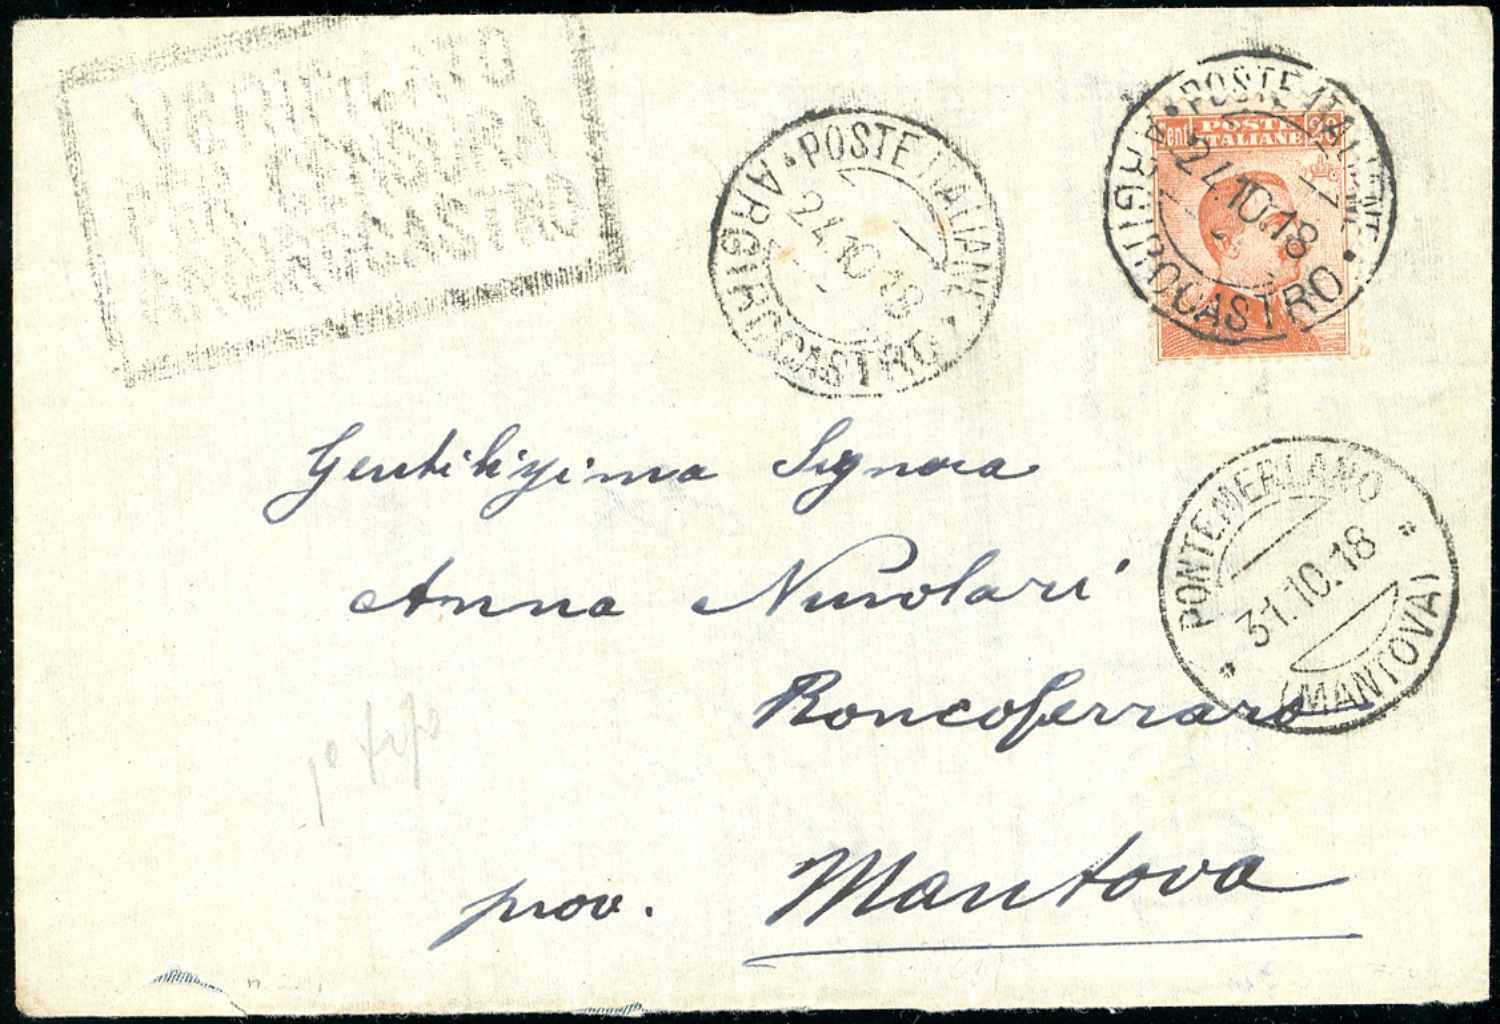 VERIFICATO
PER CENSURA
ARGIROCASTRO
POSTE ITALIANE
24.10.18
ARGIROCASTRO
POSTE ITALIANE
24.10.18
ARGIROCASTRO
Cent POSTE 20
ITALIANE
Gentilissima Signora
Anna Nuvolari
Roncoferraro
prov. Mantova
PONTEMERLANO
31.10.18
(MANTOVA)
1º tipo